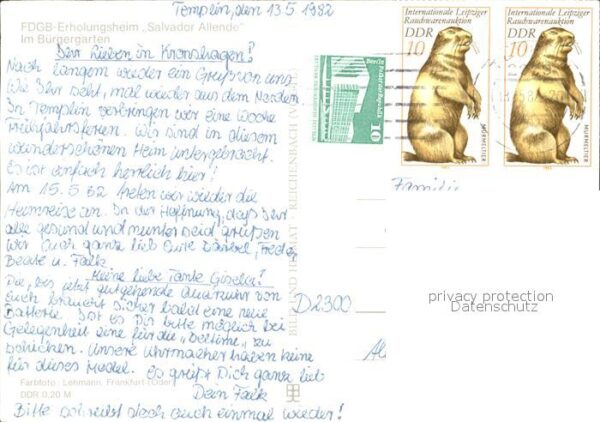 Templin, den 13.5.1982
FDGB-Erholungsheim „Salvador Allende"
Im Bürgergarten
Ihr Lieben in Kronshagen!
Nach langem wieder ein Gruß von uns.
Wie Ihr seht, mal wieder aus dem Norden.
In Templin verbringen wir eine Woche
Frühjahrsferien. Wir sind in diesem
wunderschönen Heim untergebracht.
Es ist einfach herrlich hier!
Am 15.5.82 treten wir wieder die
Heimreise an. In der Hoffnung, dass Ihr
alle gesund und munter seid grüßen
wir Euch ganz lieb Eure Bärbel,
Beate u. Falk
Meine liebe Tante Gisela!
Die, bis jetzt gutgehende Quarzuhr von
Euch braucht sicher bald eine neue
Batterie. Ist es Dir bitte möglich bei
Gelegenheit eine für die „Beltime" zu
schicken. Unsere Uhrmacher haben keine
für dieses Model. Es grüßt Dich ganz lieb
Dein Falk
Farbfoto: Lehmann, Frankfurt (Oder)
DDR 0,20 M
Bitte schreibt doch auch einmal wieder!
BILD UND HEIMAT REICHENBACH (VOGTL)
Berlin
Palast der Republik
10
Internationale Leipziger
Rauchwarenauktion
DDR
10
MURMELTIER
Internationale Leipziger
Rauchwarenauktion
DDR
10
MURMELTIER
Familie
D2300
privacy protection
Datenschutz